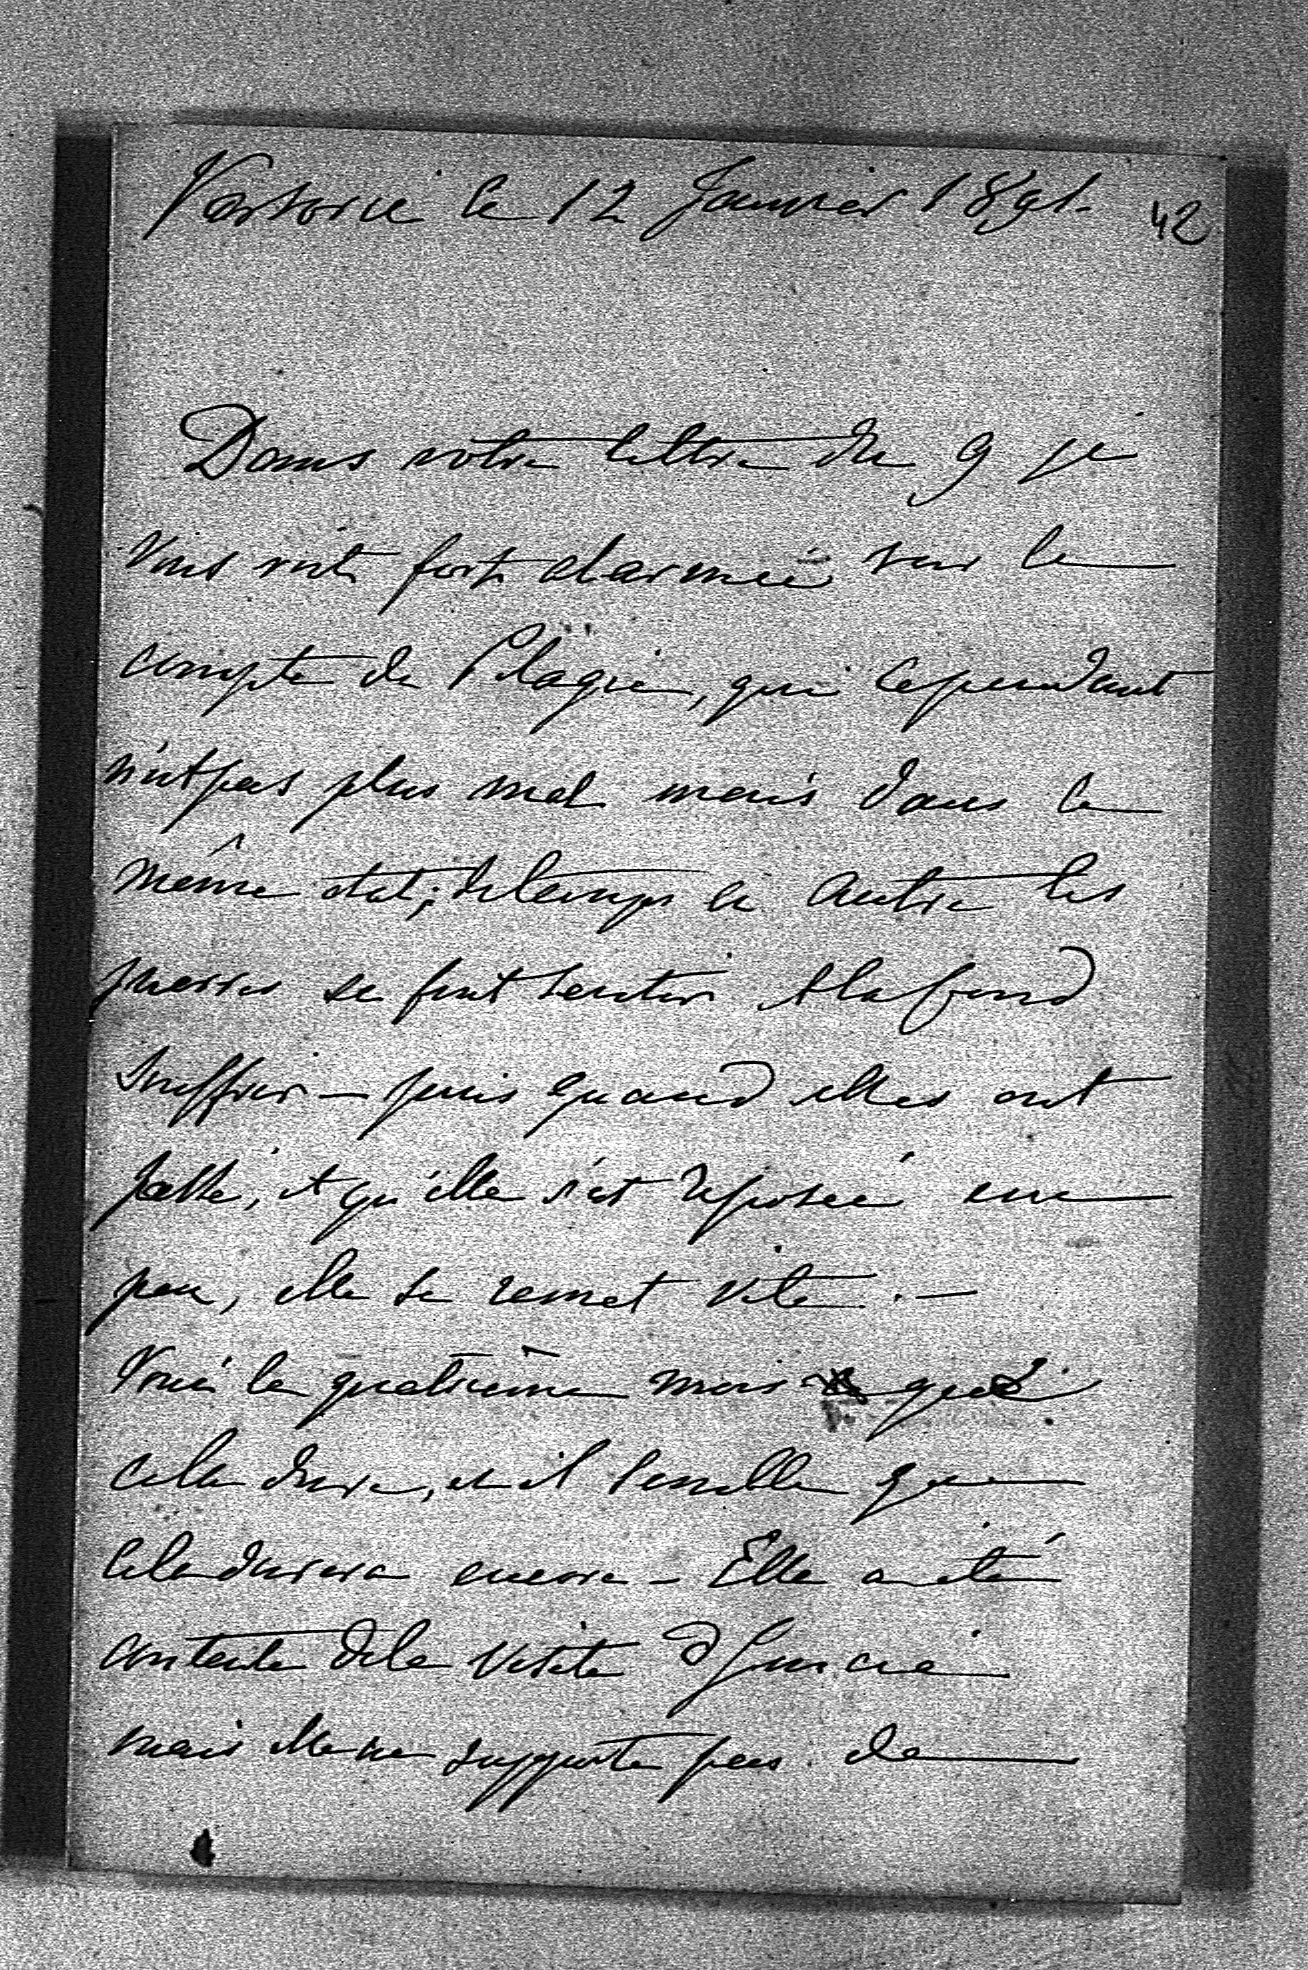 Varsovie le 12 Janvier 1891.
42
Dans votre lettre du 9 je
vous vois fort alarmée sur le
compte de Pélagie, qui cependant
n'est pas plus mal mais dans le
même état; de temps en autre les
pierres se font sentir et la font
souffrir – puis quand elles ont
passé, et qu'elle s'est reposée un
peu, elle se remet vite. –
Voici le quatrième mois que
cela dure, et il semble que
cela durera encore – Elle a été
contente de la visite
mais elle ne supporte pas de